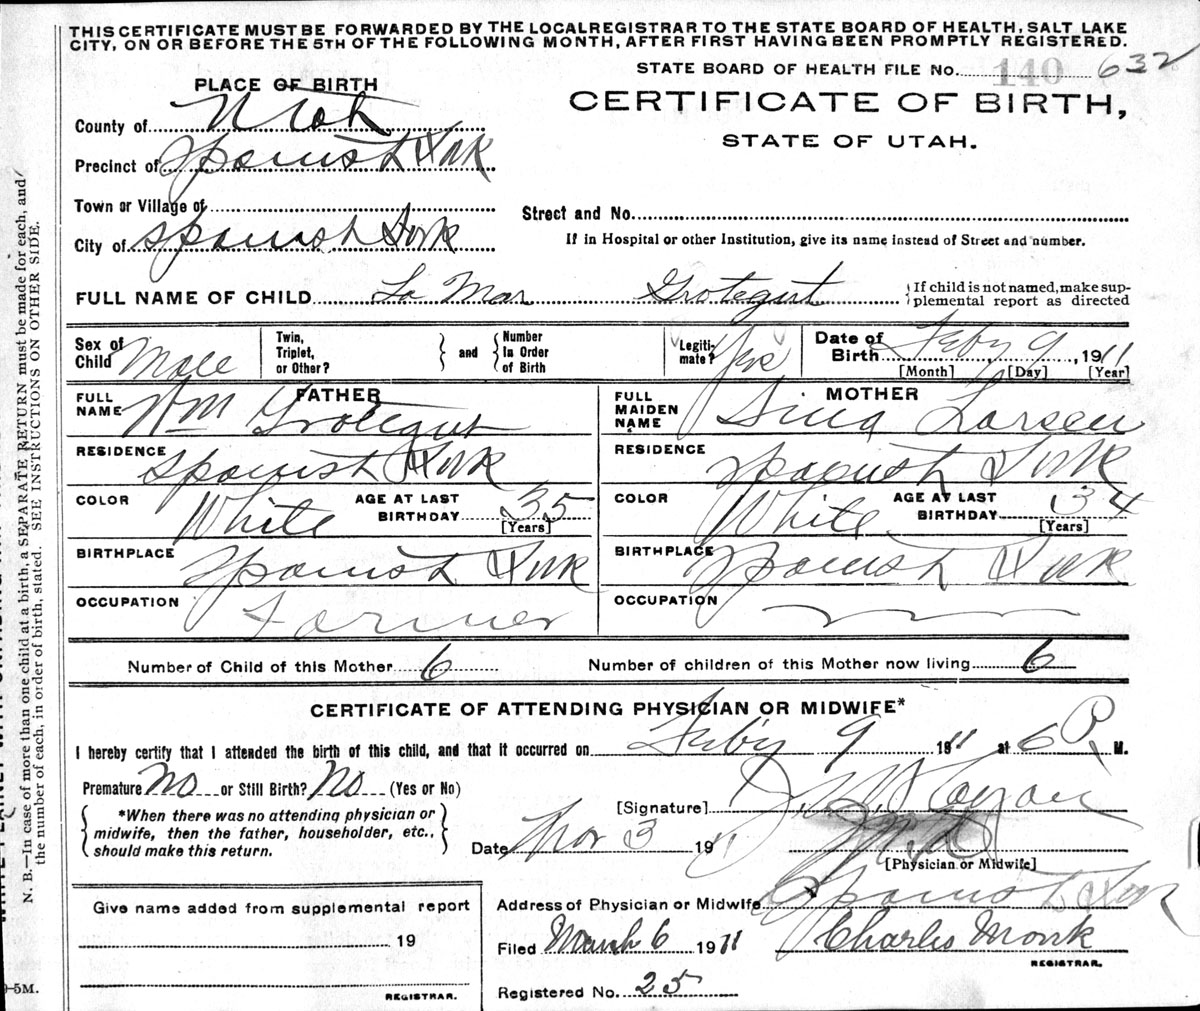 THIS CERTIFICATE MUST BE FORWARDED BY THE LOCAL REGISTRAR TO THE STATE BOARD OF HEALTH, SALT LAKE
CITY, ON OR BEFORE THE 5TH OF THE FOLLOWING MONTH, AFTER FIRST HAVING BEEN PROMPTLY REGISTERED.
STATE BOARD OF HEALTH FILE No. 140 632
PLACE OF BIRTH
CERTIFICATE OF BIRTH,
STATE OF UTAH.
County of Utah
Precinct of Spanish Fork
Town or Village of
City of Spanish Fork
Street and No.
If in Hospital or other Institution, give its name instead of Street and number.
FULL NAME OF CHILD La Mar Grotegut
If child is not named, make sup-
plemental report as directed
Sex of Child Male
Twin, Triplet, or Other?
and
Number In Order of Birth
Legiti-mate? Yes
Date of Birth Feby 9, 1911
[Month] [Day] [Year]
FATHER
FULL NAME Wm Grotegut
RESIDENCE Spanish Fork
COLOR White
AGE AT LAST BIRTHDAY 35
[Years]
BIRTHPLACE Spanish Fork
OCCUPATION Farmer
MOTHER
FULL MAIDEN NAME Sina Larsen
RESIDENCE Spanish Fork
COLOR White
AGE AT LAST BIRTHDAY 34
[Years]
BIRTHPLACE Spanish Fork
OCCUPATION
Number of Child of this Mother 6
Number of children of this Mother now living 6
CERTIFICATE OF ATTENDING PHYSICIAN OR MIDWIFE*
I hereby certify that I attended the birth of this child, and that it occurred on Feby 9 1911 at 6 P. M.
Premature No or Still Birth? No (Yes or No)
*When there was no attending physician or
midwife, then the father, householder, etc.,
should make this return.
[Signature]
M.D.
Date Mar 3 1911
[Physician or Midwife]
Address of Physician or Midwife Spanish Fork
Give name added from supplemental report
19
REGISTRAR.
Filed March 6 1911
Charles Monk
REGISTRAR.
Registered No. 25
N. B.—In case of more than one child at a birth, a SEPARATE RETURN must be made for each, and
the number of each, in order of birth, stated. SEE INSTRUCTIONS ON OTHER SIDE.
-5M.